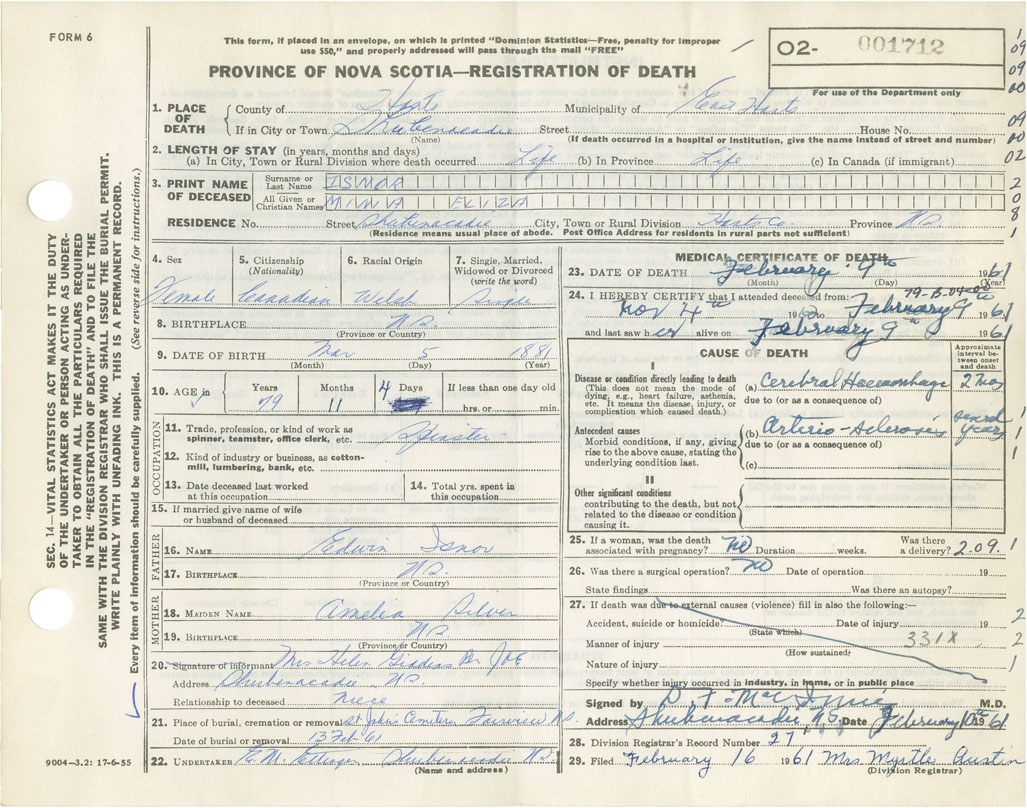 FORM 6
This form, if placed in an envelope, on which is printed "Dominion Statistics—Free, penalty for improper
use $50," and properly addressed will pass through the mail "FREE"
O2- 001712
For use of the Department only
PROVINCE OF NOVA SCOTIA—REGISTRATION OF DEATH
1. PLACE OF DEATH
County of Hants Municipality of East Hants
If in City or Town Shubenacadie Street House No.
(Name) (If death occurred in a hospital or institution, give the name instead of street and number)
2. LENGTH OF STAY (in years, months and days)
(a) In City, Town or Rural Division where death occurred Life (b) In Province Life (c) In Canada (if immigrant)
3. PRINT NAME OF DECEASED
Surname or Last Name ISNOR
All Given or Christian Names MINNA ELIZA
RESIDENCE No. Street Shubenacadie City, Town or Rural Division Hants Co Province N.S.
(Residence means usual place of abode. Post Office Address for residents in rural parts not sufficient)
4. Sex
Female
5. Citizenship
(Nationality)
Canadian
6. Racial Origin
Welsh
7. Single, Married, Widowed or Divorced
(write the word)
Single
8. BIRTHPLACE N.S.
(Province or Country)
9. DATE OF BIRTH Mar 5 1881
(Month) (Day) (Year)
10. AGE in Years Months Days If less than one day old
79 11 4 hrs. or min.
OCCUPATION
11. Trade, profession, or kind of work as
spinner, teamster, office clerk, etc. Spinster
12. Kind of industry or business, as cotton-
mill, lumbering, bank, etc.
13. Date deceased last worked
at this occupation
14. Total yrs. spent in
this occupation
15. If married give name of wife
or husband of deceased
FATHER
16. NAME Edwin Isnor
17. BIRTHPLACE N.S.
(Province or Country)
MOTHER
18. MAIDEN NAME Amelia Silver
19. BIRTHPLACE NS
(Province or Country)
20. Signature of informant Mrs Helen Giddins Per
Address Shubenacadie N.S.
Relationship to deceased Niece
21. Place of burial, cremation or removal St John's Cemetery Fairview N.S.
Date of burial or removal 13 Feb 61
22. UNDERTAKER E.M. Ettinger Shubenacadie N.S.
(Name and address)
MEDICAL CERTIFICATE OF DEATH
23. DATE OF DEATH February 9th 1961
(Month) (Day) (Year)
79-B-04-00
24. I HEREBY CERTIFY that I attended deceased from:
Nov 4th 1960 to February 9th 1961
and last saw her alive on February 9th 1961
CAUSE OF DEATH
Approximate interval between onset and death
I
Disease or condition directly leading to death
(This does not mean the mode of
dying, e.g., heart failure, asthenia,
etc. It means the disease, injury, or
complication which caused death.)
(a) Cerebral Haemorrhage
due to (or as a consequence of)
Antecedent causes
Morbid conditions, if any, giving
rise to the above cause, stating the
underlying condition last.
(b) Arterio-sclerosis several years
due to (or as a consequence of)
(c)
II
Other significant conditions
contributing to the death, but not
related to the disease or condition
causing it.
25. If a woman, was the death
associated with pregnancy? No Duration weeks. Was there a delivery? 2.09.
26. Was there a surgical operation? No Date of operation 19
State findings Was there an autopsy?
27. If death was due to external causes (violence) fill in also the following:—
Accident, suicide or homicide? Date of injury 19
(State which)
Manner of injury 331X
(How sustained)
Nature of injury
Specify whether injury occurred in industry, in home, or in public place
Signed by D F MacInnis M.D.
Address Shubenacadie, N.S. Date February 10th 1961
28. Division Registrar's Record Number 27
29. Filed February 16 1961 Mrs Myrtle Austin
(Division Registrar)
SEC. 14—VITAL STATISTICS ACT MAKES IT THE DUTY
OF THE UNDERTAKER OR PERSON ACTING AS UNDER-
TAKER TO OBTAIN ALL THE PARTICULARS REQUIRED
IN THE "REGISTRATION OF DEATH" AND TO FILE THE
SAME WITH THE DIVISION REGISTRAR WHO SHALL ISSUE THE BURIAL PERMIT.
WRITE PLAINLY WITH UNFADING INK. THIS IS A PERMANENT RECORD.
Every item of information should be carefully supplied. (See reverse side for instructions.)
9004—3.2: 17-6-55